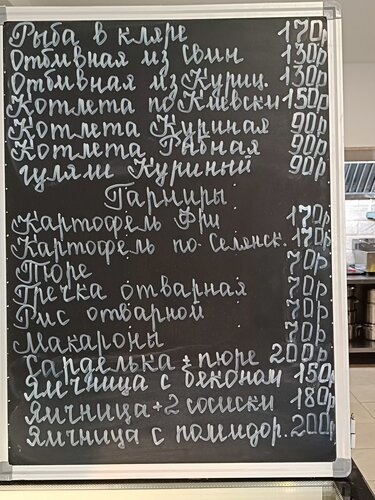 Рыба в кляре 170р
Отбивная из Свин 130р
Отбивная из Куриц. 130р
Котлета по Киевски 150р
Котлета Куриная 90р
Котлета Рыбная 90р
гуляш Куриный 90р
Гарниры
Картофель Фри 170р
Картофель по Селянск. 170р
Пюре 70р
Гречка отварная 70р
Рис отварной 70р
Макароны 70р
Сарделька + пюре 200р
Яичница с беконом 150р
Яичница + 2 сосиски 180р
Яичница с помидор. 200р